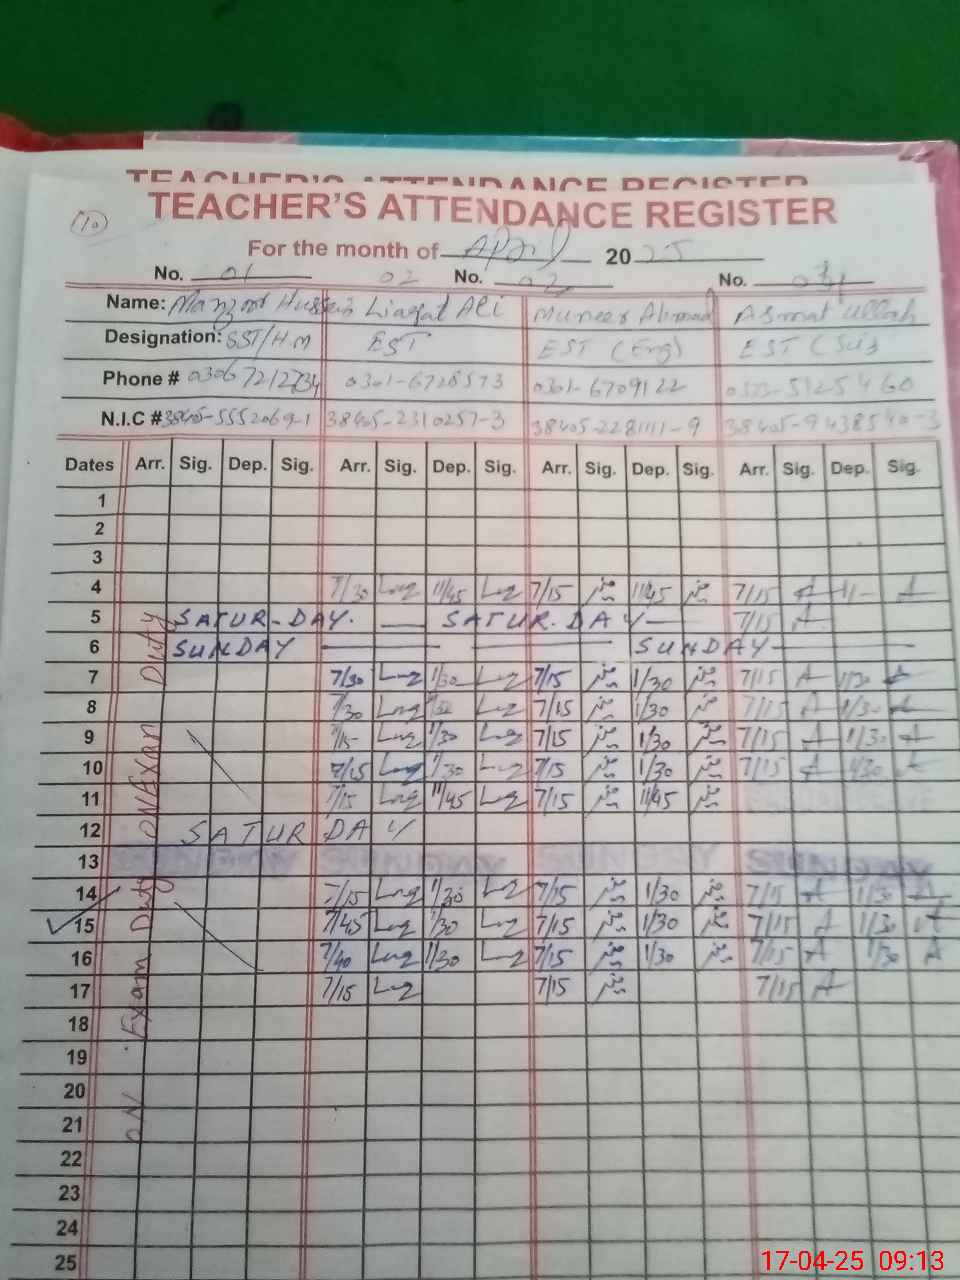 TEACHER'S ATTENDANCE REGISTER
TEACHER'S ATTENDANCE REGISTER
10
For the month of April 2025
No. 01 02 No. 02 No.
Name: Manzoor Hussain Liaqat Ali Muneer Ahmad Asmat ullah
Designation: SST/H.M EST EST (Eng) EST (Sci)
Phone # 03067212734 0301-6728573 0301-6709122 0333-5125460
N.I.C # 38405-5552069-1 38405-2310257-3 38405-2281111-9 38405-9438540-3
Dates Arr. Sig. Dep. Sig. Arr. Sig. Dep. Sig. Arr. Sig. Dep. Sig. Arr. Sig. Dep. Sig.
1
2
3
4 7/30 11/45 7/15 11/45 7/15 A 11/- A
5 SATUR-DAY. — SATUR.DAY— 7/15 A
6 SUNDAY — SUNDAY —
7 7/30 1/30 7/15 1/30 7/15 A 1/30 A
8 7/30 1/30 7/15 1/30 7/15 A 1/30 A
9 7/15 1/30 7/15 1/30 7/15 A 1/30 A
10 7/15 1/30 7/15 1/30 7/15 A 1/30 A
11 7/15 11/45 7/15 11/45
12 SATURDAY
13
14 7/15 1/30 7/15 1/30 7/15 A 1/30 A
15 7/45 1/30 7/15 1/30 7/15 A 1/30 A
16 7/40 1/30 7/15 1/30 7/15 A 1/30 A
17 7/15 7/15 7/15 A
18
19
20
21
22
23
24
25
ON Exam Duty ON Exam Duty
17-04-25 09:13